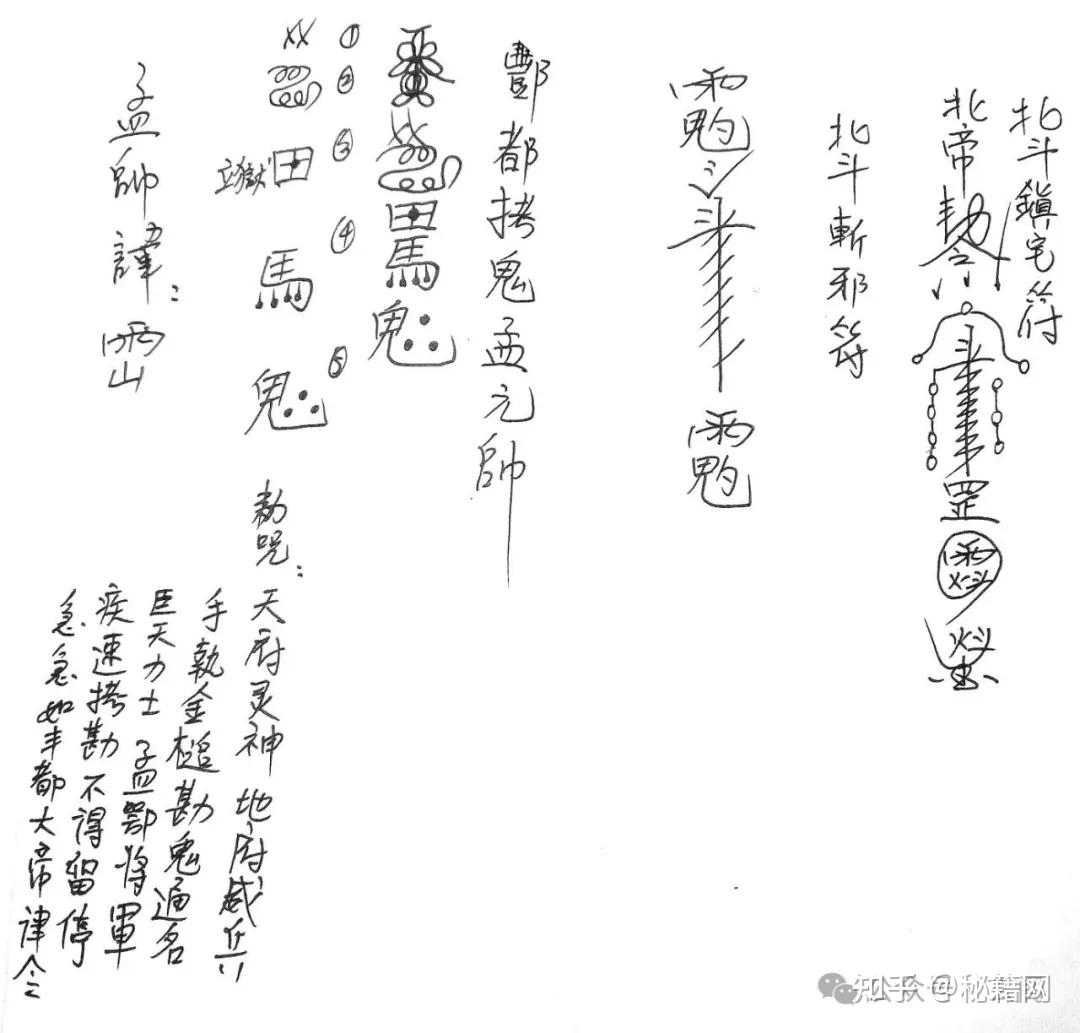 北斗鎮宅符
北帝敕令
罡
北斗斬邪符
酆都拷鬼孟元帥
①
②
③田
立獄
④馬
⑤鬼
孟帥諱：
敕咒：
天府灵神 地府威兵
手執金槌勘鬼通名
巨天力士 孟鄂将軍
疾速拷勘不得留停
急急如丰都大帝律令
知乎 @秘籍网